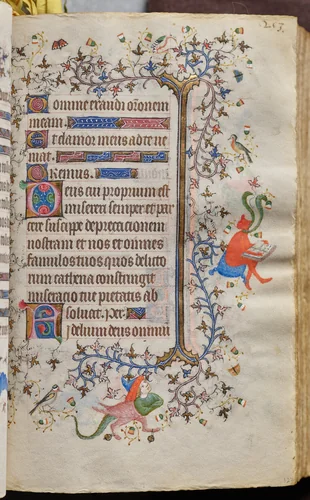 Domine exaudi orōnem
meam.
Et clamor meus ad te ne
mat.
Oremus.
Deus cui proprium est
misereri semper et par
cere suscipe deprecacionem
nostram et nos et omnes
famulos tuos quos delicto
rum cathena constringit
miseracio tue pietatis ab
soluat. Per.
Fidelium deus omniū